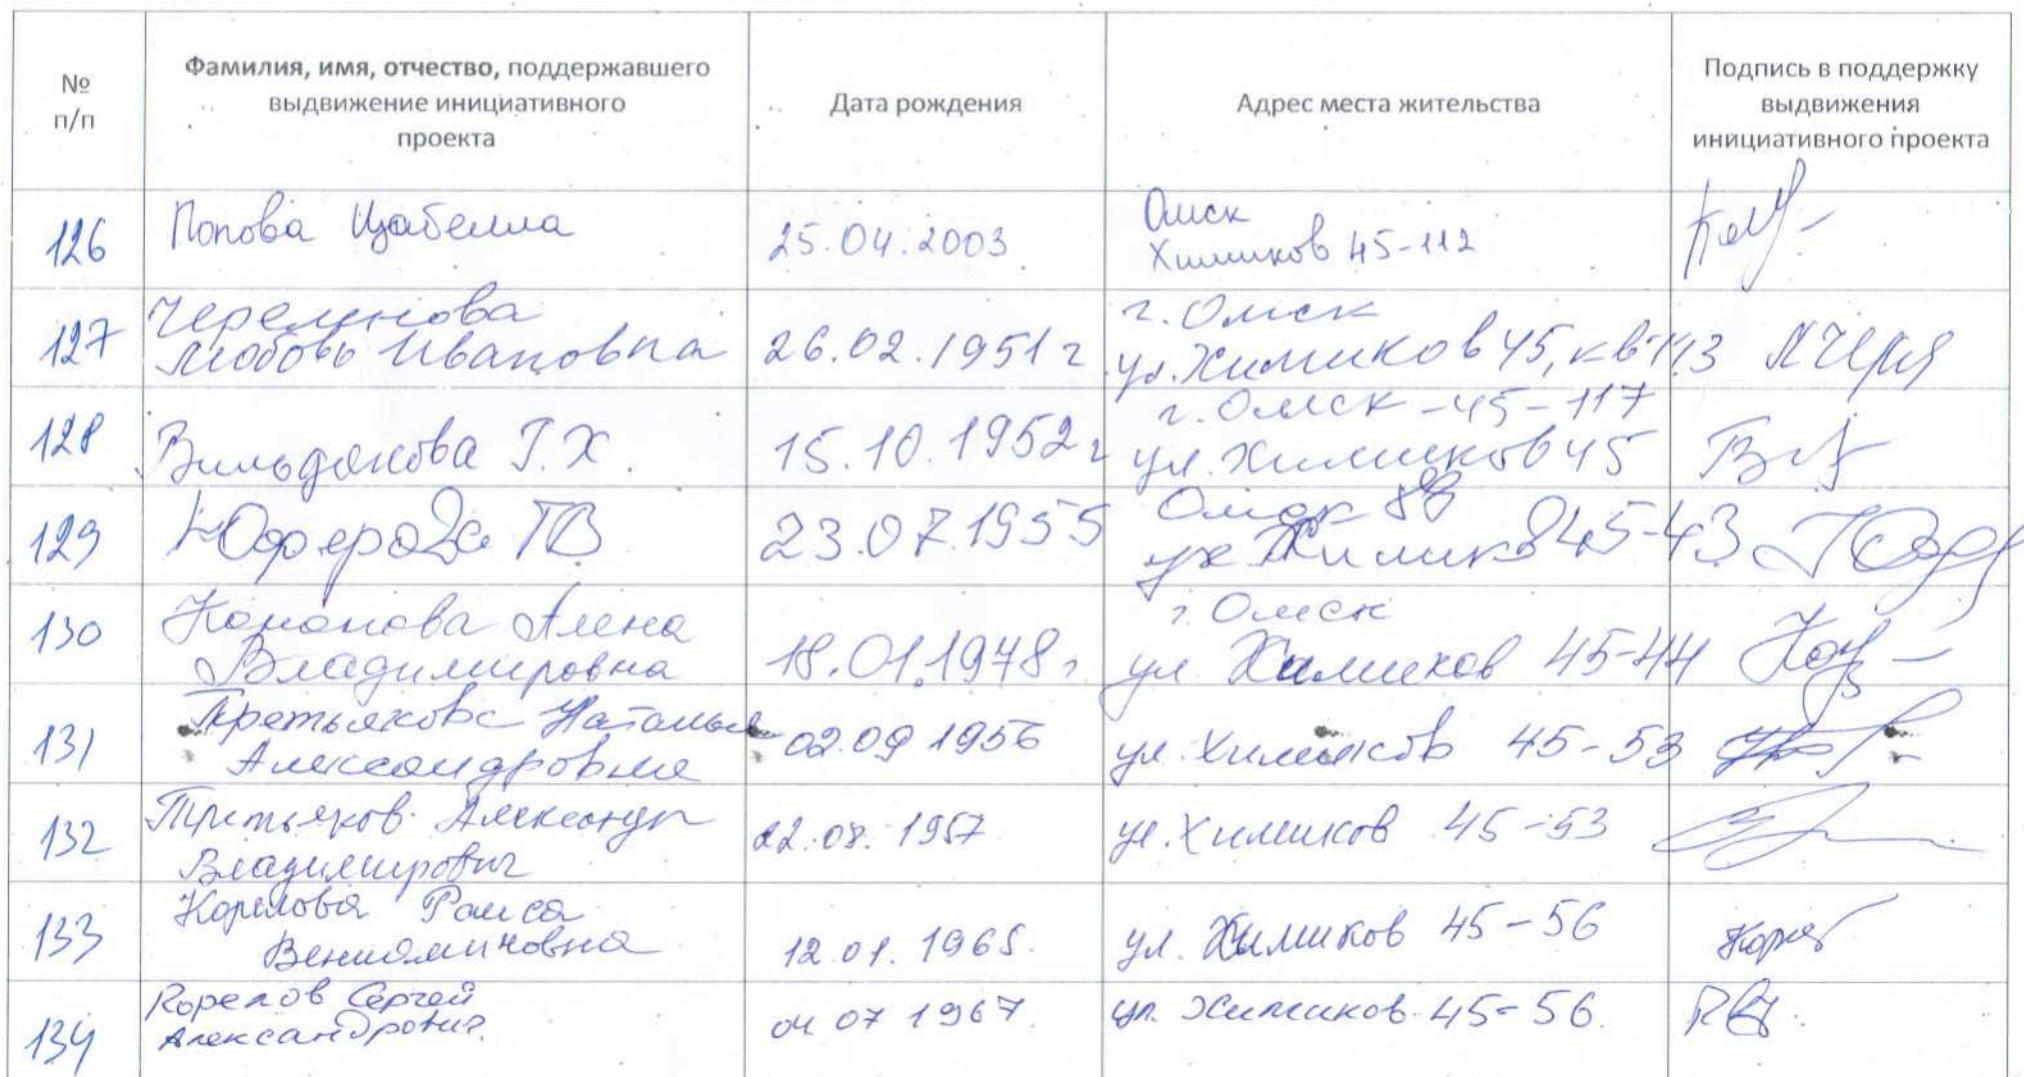 №
п/п
Фамилия, имя, отчество, поддержавшего
выдвижение инициативного
проекта
Дата рождения
Адрес места жительства
Подпись в поддержку
выдвижения
инициативного проекта
126
Попова Изабелла
25.04.2003
Омск
Химиков 45-112
127
Черемнова
Любовь Ивановна
26.02.1951 г
г. Омск
ул. Химиков 45, кв 113
128
Вильданова Г.Х.
15.10.1952 г
г. Омск -45-117
ул. Химиков 45
129
Юферова ТВ
23.07.1955
Омск 88
ул Химиков 45-43
130
Кононова Алена
Владимировна
18.01.1978 г
г. Омск
ул Химиков 45-44
131
Третьякова Наталья
Александровна
02.09 1956
ул. Химиков 45-53
132
Третьяков Александр
Владимирович
22.08. 1957
ул. Химиков 45-53
133
Корелова Раиса
Вениаминовна
12.01. 1965.
ул. Химиков 45-56
134
Корелов Сергей
Александрович
04 07 1967.
ул. Химиков 45-56.